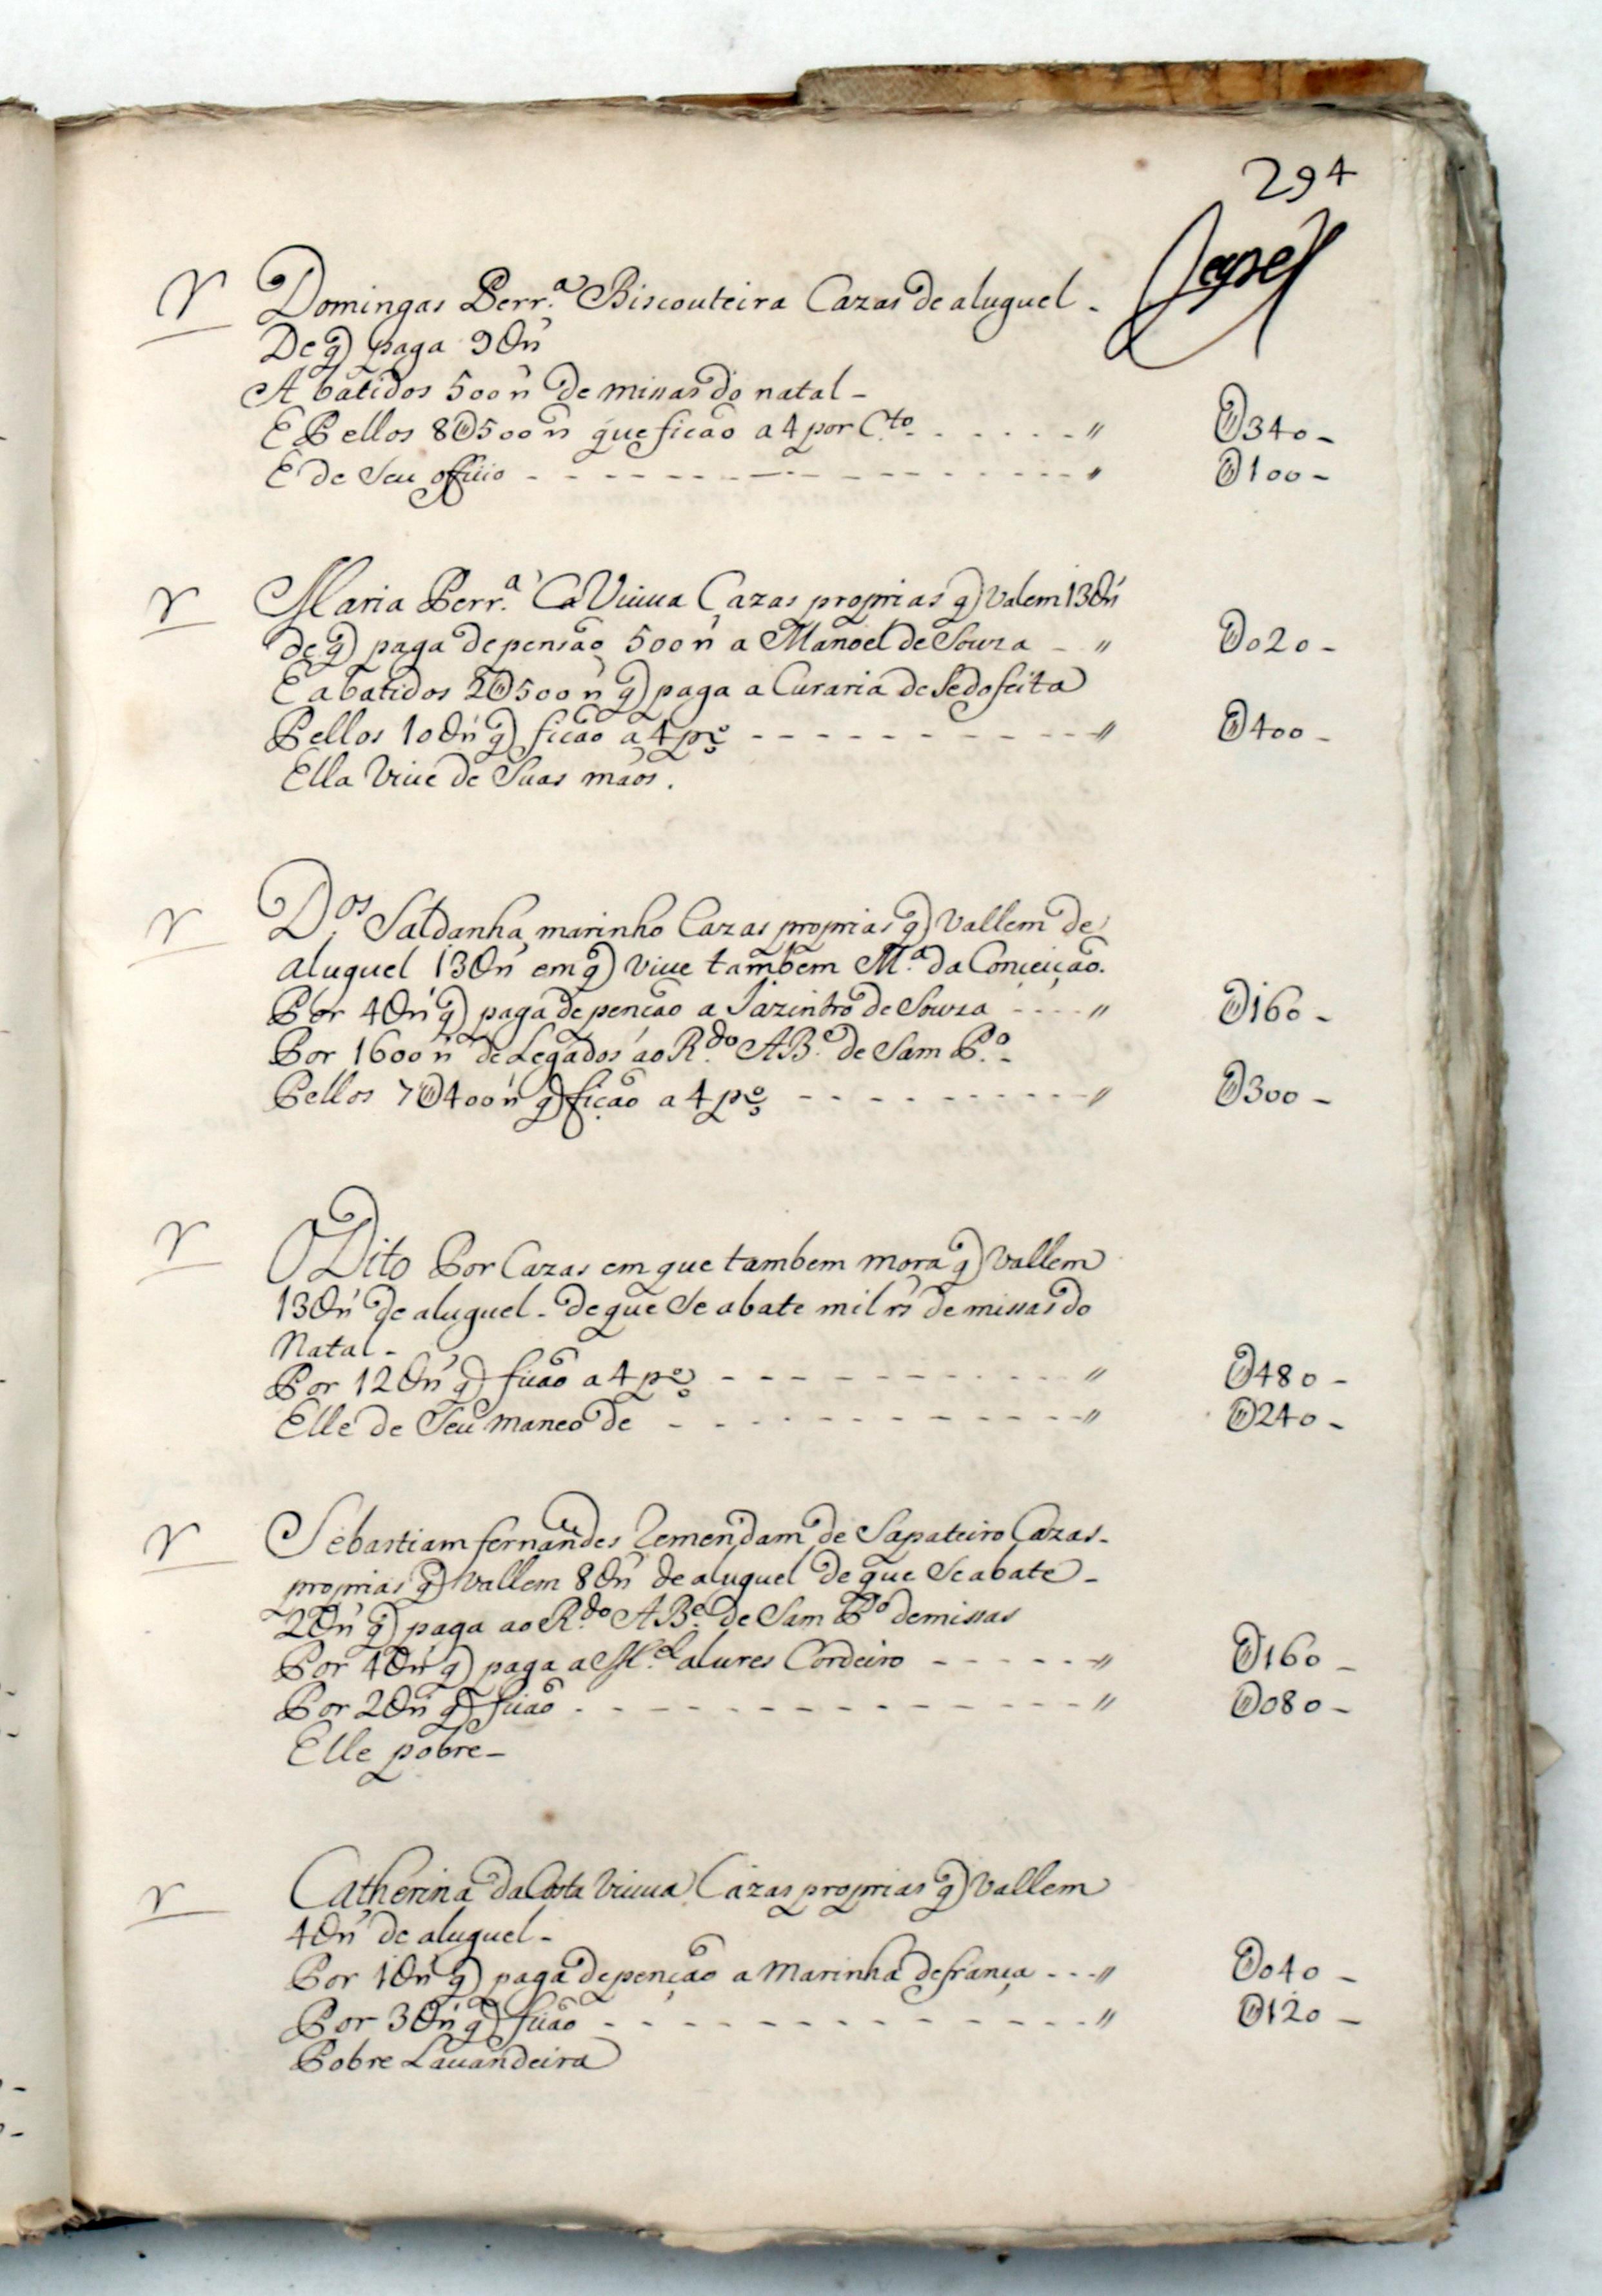 294
V Domingas Perr.ª Biscouteira Cazas de aluguel -
De q̃ paga 9U rs̃
Abatidos 500 rs̃ de missas do natal -
E Pellos 8U500 rs̃ que ficão a 4 por C.to - - - - - " U340 -
E de Seu offiçio - - - - - - - - - - " U100 -
V Maria Perr.ª Ca Viuua Cazas proprias q̃ valem 13U rs̃
de q̃ paga de pensão 500 rs̃ a Manoel de Souza - " U020 -
E abatidos 2U500 rs̃ q̃ paga a Curaria de Sedofeita
Pellos 10U rs̃ q̃ ficão a 4 p.co - - - - - - - - - - " U400 -
Ella Viue de Suas mãos.
V D.os Saldanha marinho Cazas proprias q̃ vallem de
aluguel 13U rs̃ em q̃ viue também M.ª da Conçeição.
Por 4U rs̃ q̃ paga de penção a Jazintho de Souza - - - - " U160 -
Por 1600 rs̃ de Legados ao R.do AB.e de Sam P.o -
Pellos 7U400 rs̃ q̃ ficão a 4 p.co - - - - - - - - - " U300 -
V O Dito Por Cazas em que tambem mora q̃ vallem
13U rs̃ de aluguel - de que Se abate mil rs̃ de missas do
Natal -
Por 12U rs̃ q̃ ficão a 4 p.co - - - - - - - - - - " U480 -
Elle de Seu maneo de - - - - - - - - - - " U240 -
V Sebastiam fernandes Remendam de Sapateiro Cazas -
proprias q̃ vallem 8U rs̃ de aluguel de que Se abate -
2U rs̃ q̃ paga ao R.do AB.e de Sam P.o de missas
Por 4U rs̃ q̃ paga a M.el alures Cordeiro - - - - - " U160 -
Por 2U rs̃ q̃ ficão - - - - - - - - - - - " U080 -
Elle pobre -
V Catherina da Costa Viuua Cazas proprias q̃ vallem
4U rs̃ de aluguel -
Por 1U rs̃ q̃ paga de penção a Marinha de frança - - - " U040 -
Por 3U rs̃ q̃ ficão - - - - - - - - - - - - " U120 -
Pobre Lauandeira